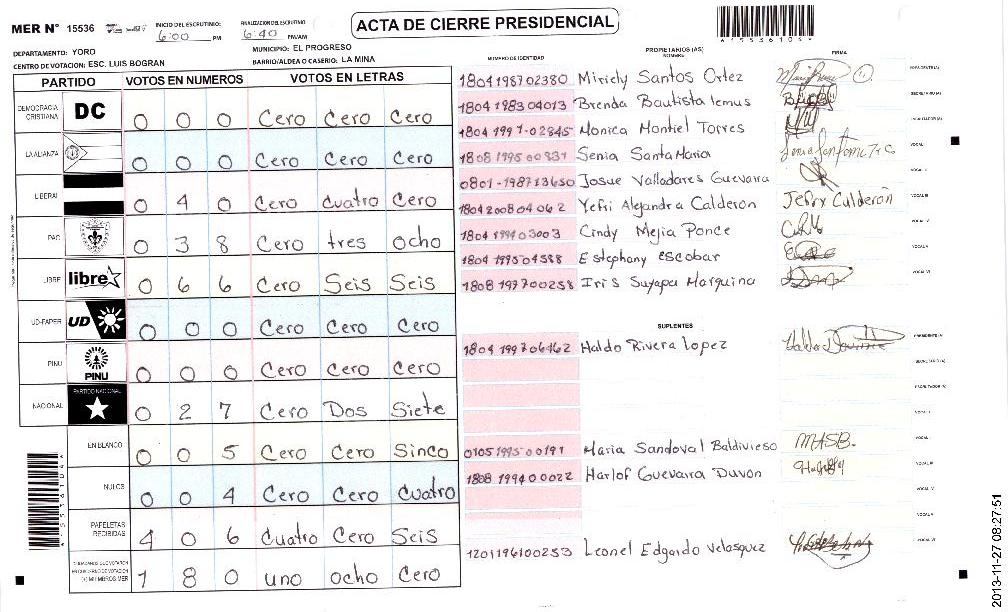 MER N° 15536
INICIO DEL ESCRUTINIO: 6:00 PM
FINALIZACION DEL ESCRUTINIO: 6:40 PM/AM
ACTA DE CIERRE PRESIDENCIAL
DEPARTAMENTO: YORO
MUNICIPIO: EL PROGRESO
CENTRO DE VOTACION: ESC. LUIS BOGRAN
BARRIO/ALDEA O CASERIO: LA MINA
PARTIDO VOTOS EN NUMEROS VOTOS EN LETRAS
DEMOCRACIA CRISTIANA DC 0 0 0 Cero Cero Cero
LA ALIANZA 0 0 0 Cero Cero Cero
LIBERAL 0 4 0 Cero Cuatro Cero
PAC 0 3 8 Cero tres ocho
LIBRE libre 0 6 6 Cero Seis Seis
UD-FAPER UD 0 0 0 Cero Cero Cero
PINU PINU 0 0 0 Cero Cero Cero
NACIONAL PARTIDO NACIONAL 0 2 7 Cero Dos Siete
EN BLANCO 0 0 5 Cero Cero Sinco
NULOS 0 0 4 Cero Cero Cuatro
PAPELETAS RECIBIDAS 4 0 6 Cuatro Cero Seis
CIUDADANOS QUE VOTARON EN CUADERNO DE VOTACION (+) MIEMBROS MER 1 8 0 uno ocho Cero
NUMERO DE IDENTIDAD PROPIETARIOS (AS) NOMBRE FIRMA
1804198702380 Miriely Santos Ortez PRESIDENTE(A)
1804198304013 Brenda Bautista lemus SECRETARIO (A)
1804 1991-02845 Monica Montiel Torres ESCRUTADOR(A)
1808 1995 00831 Senia Santa Maria VOCAL I
0801-198713650 Josue Valladares Guevarra
1804200804062 Yefri Alejandra Calderon Jefry Calderón VOCAL III
1804 199403003 Cindy Mejia Ponce
1804 199504588 Estephany escobar VOCAL V
1808 197700258 Iris Suyapa Marquina VOCAL VI
SUPLENTES
1804 199706462 Haldo Rivera lopez PRESIDENTE(A)
SECRETARIO (A)
ESCRUTADOR (A)
VOCAL I
0105199500191 Maria Sandoval Baldivieso MASB.
1808 199400022 Harlof Guevarra Duvon
VOCAL V
1201196100253 Leonel Edgardo Velasquez VOCAL VI
2013-11-27 08:27:51